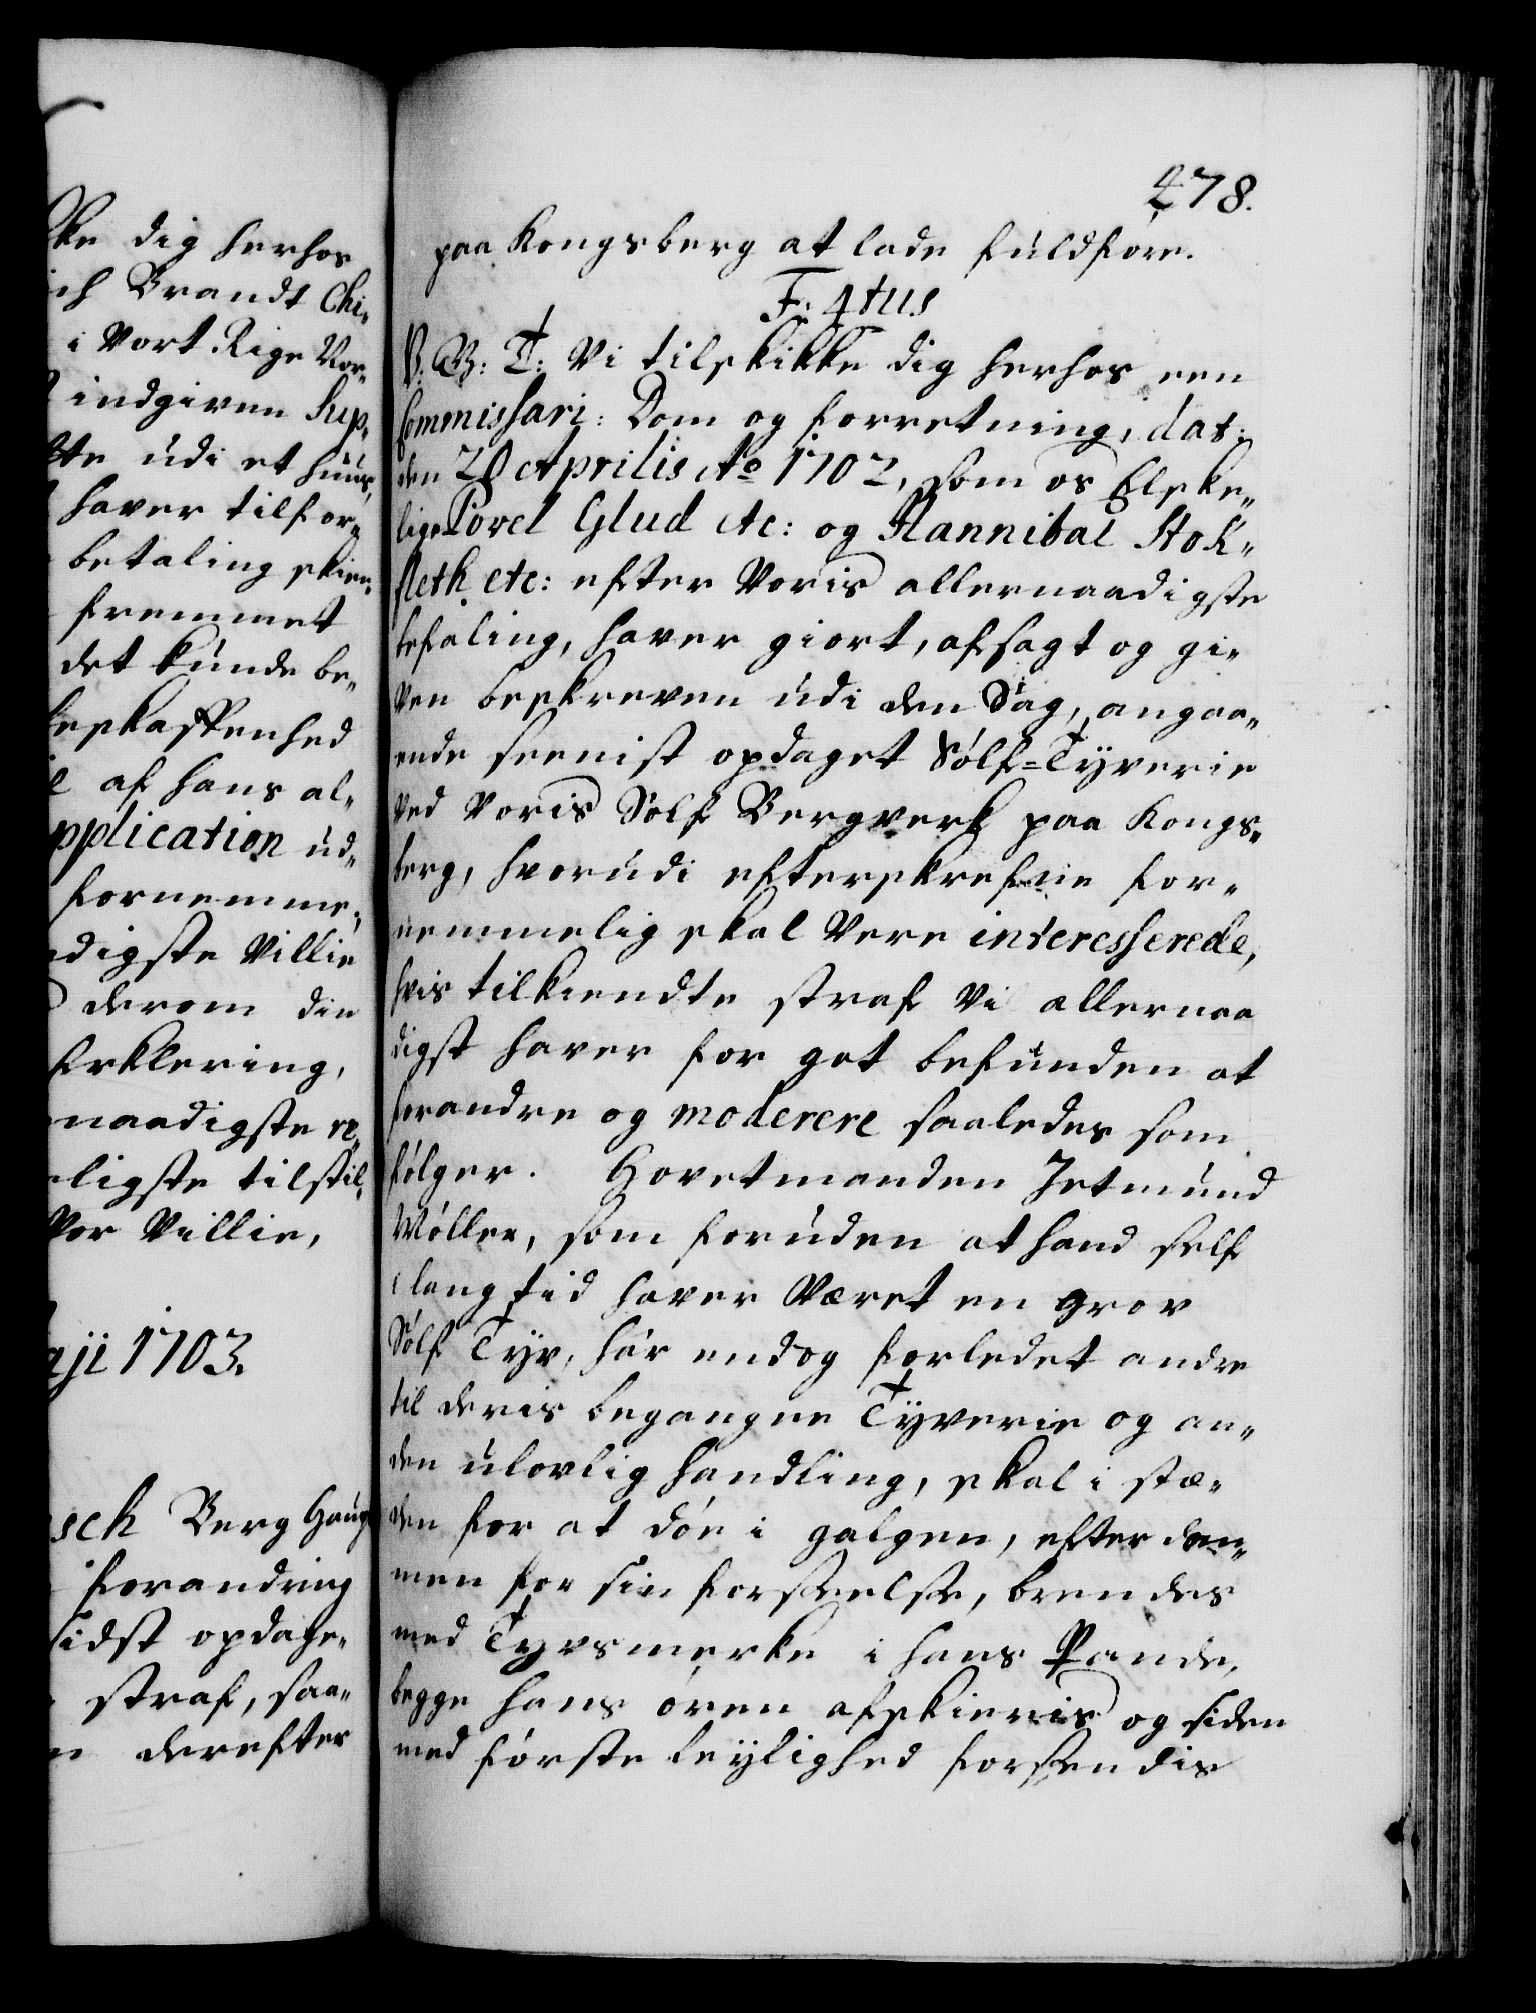 ke dig herhos
ich Brandt Chi„
i Vort Rige Nor„
indgiven Sup„
te udi et huus,
haver tilfor„
betaling skien„
fremmet
det kunde be„
beskaffenhed
af hans al„
pplication ud„
fornemme,
digste Villie
derom din
Erklering,
naadigste re„
ligste tilstil„
Vor Villie,
aji 1703.
sch Berg Haup
forandring
sidst opdage„
straf, saa„
derefter
478.
paa Kongsberg at lade fuldføre.
F: 4tus
V. G: T: Vi tilskikke dig herhos een
Commissari: Dom og forretning, dat:
den 20 Aprilis Ao 1702, som os Elske„
lige Povel Glud etc: og Hannibal Stok„
fleth etc: efter Voris allernaadigste
befaling, haver giort, afsagt og gi„
ven beskreven udi den Sag, angaa„
ende seenist opdaget Sølf=Tyverie
ved Voris Sølf Bergverk paa Kongs„
berg, hvorudi efterskrefne for„
nemmelig skal Vere interesserede,
hvis tilkiendte straf Vi allernaa
digst haver for got befunden at
forandre og moderere saaledes som
følger. Hovetmanden Jetmund
Møller, som foruden at hand self
i lang tid haver Været en grov
Sølf Tyv, har endog forledet andre
til deris begangne Tyverie og an„
den ulovlig handling, skal i stæ„
den for at døe i galgen, efter dom„
men for sin forseelse, brendes
med Tyvsmerke i hans Pande,
begge hans øren afskieris og siden
med første leylighed forsendis